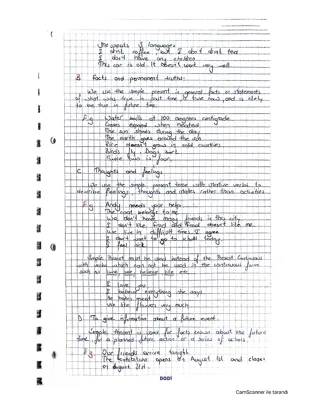 She speaks 4 languages
I drink coffee but I don't drink tea
I don't have any children
This car is old. It doesn't work very well
B. Facts and permanent truths:
We use the simple present in general facts or statements
of what was true in past time is true now, and is likely
to be true in future time.
E.g Water boils at 100 degrees centigrade
Gases expand when heated
The sun shines during the day
The earth goes around the sun
Rice doesn't grow in cold countries
Birds fly. Dogs bark.
Twice two is four.
C. Thoughts and feelings
We use the simple present tense with stative verbs to
describe feelings, thoughts and states rather than activities
E.g Andy needs your help.
The coat belongs to me.
We don't have many friends in this city
I don't like Fred and Fred doesn't like me.
We live in difficult times I agree
I don't want to go to school today
I feel sick
Simple Present must be used instead of the Present Continuous
with verbs which can not be used in the continuous form
such as love, see, believe etc
I love you
I believe everything she says
He hates meat
We like flowers very much
D. To give information about a future event.
Simple Present is used for facts known about the future
time for a planned future action or a series of actions.
E.g. Our friends arrive tonight.
The exhibition opens on August 1st and closes
on August 31st.
CamScanner ile tarandı